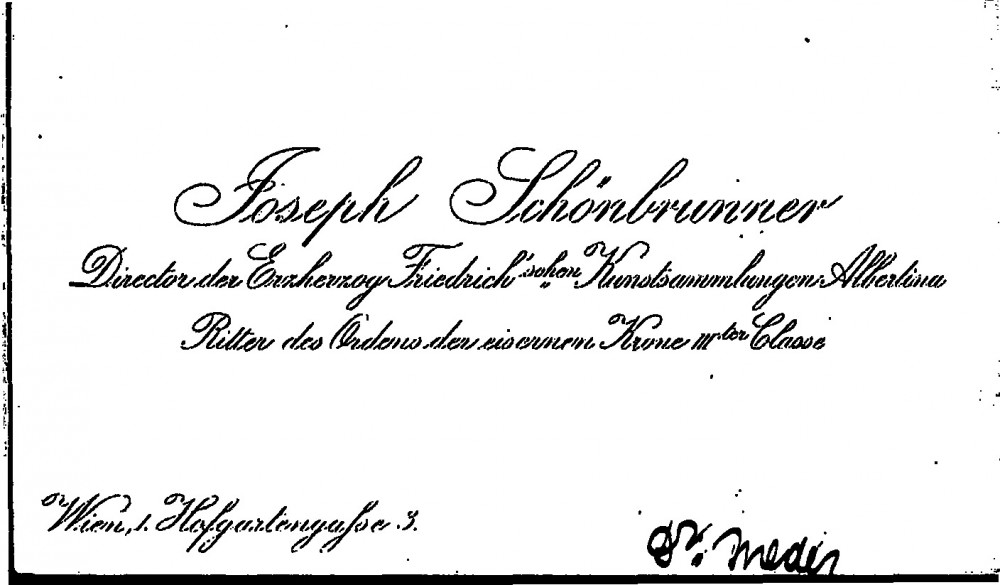 Joseph Schönbrunner
Director der Erzherzog Friedrich'schen Kunstsammlungen Albertina
Ritter des Ordens der eisernen Krone IIIter Classe
Wien, I. Hofgartengasse 3.
Dr. Meder